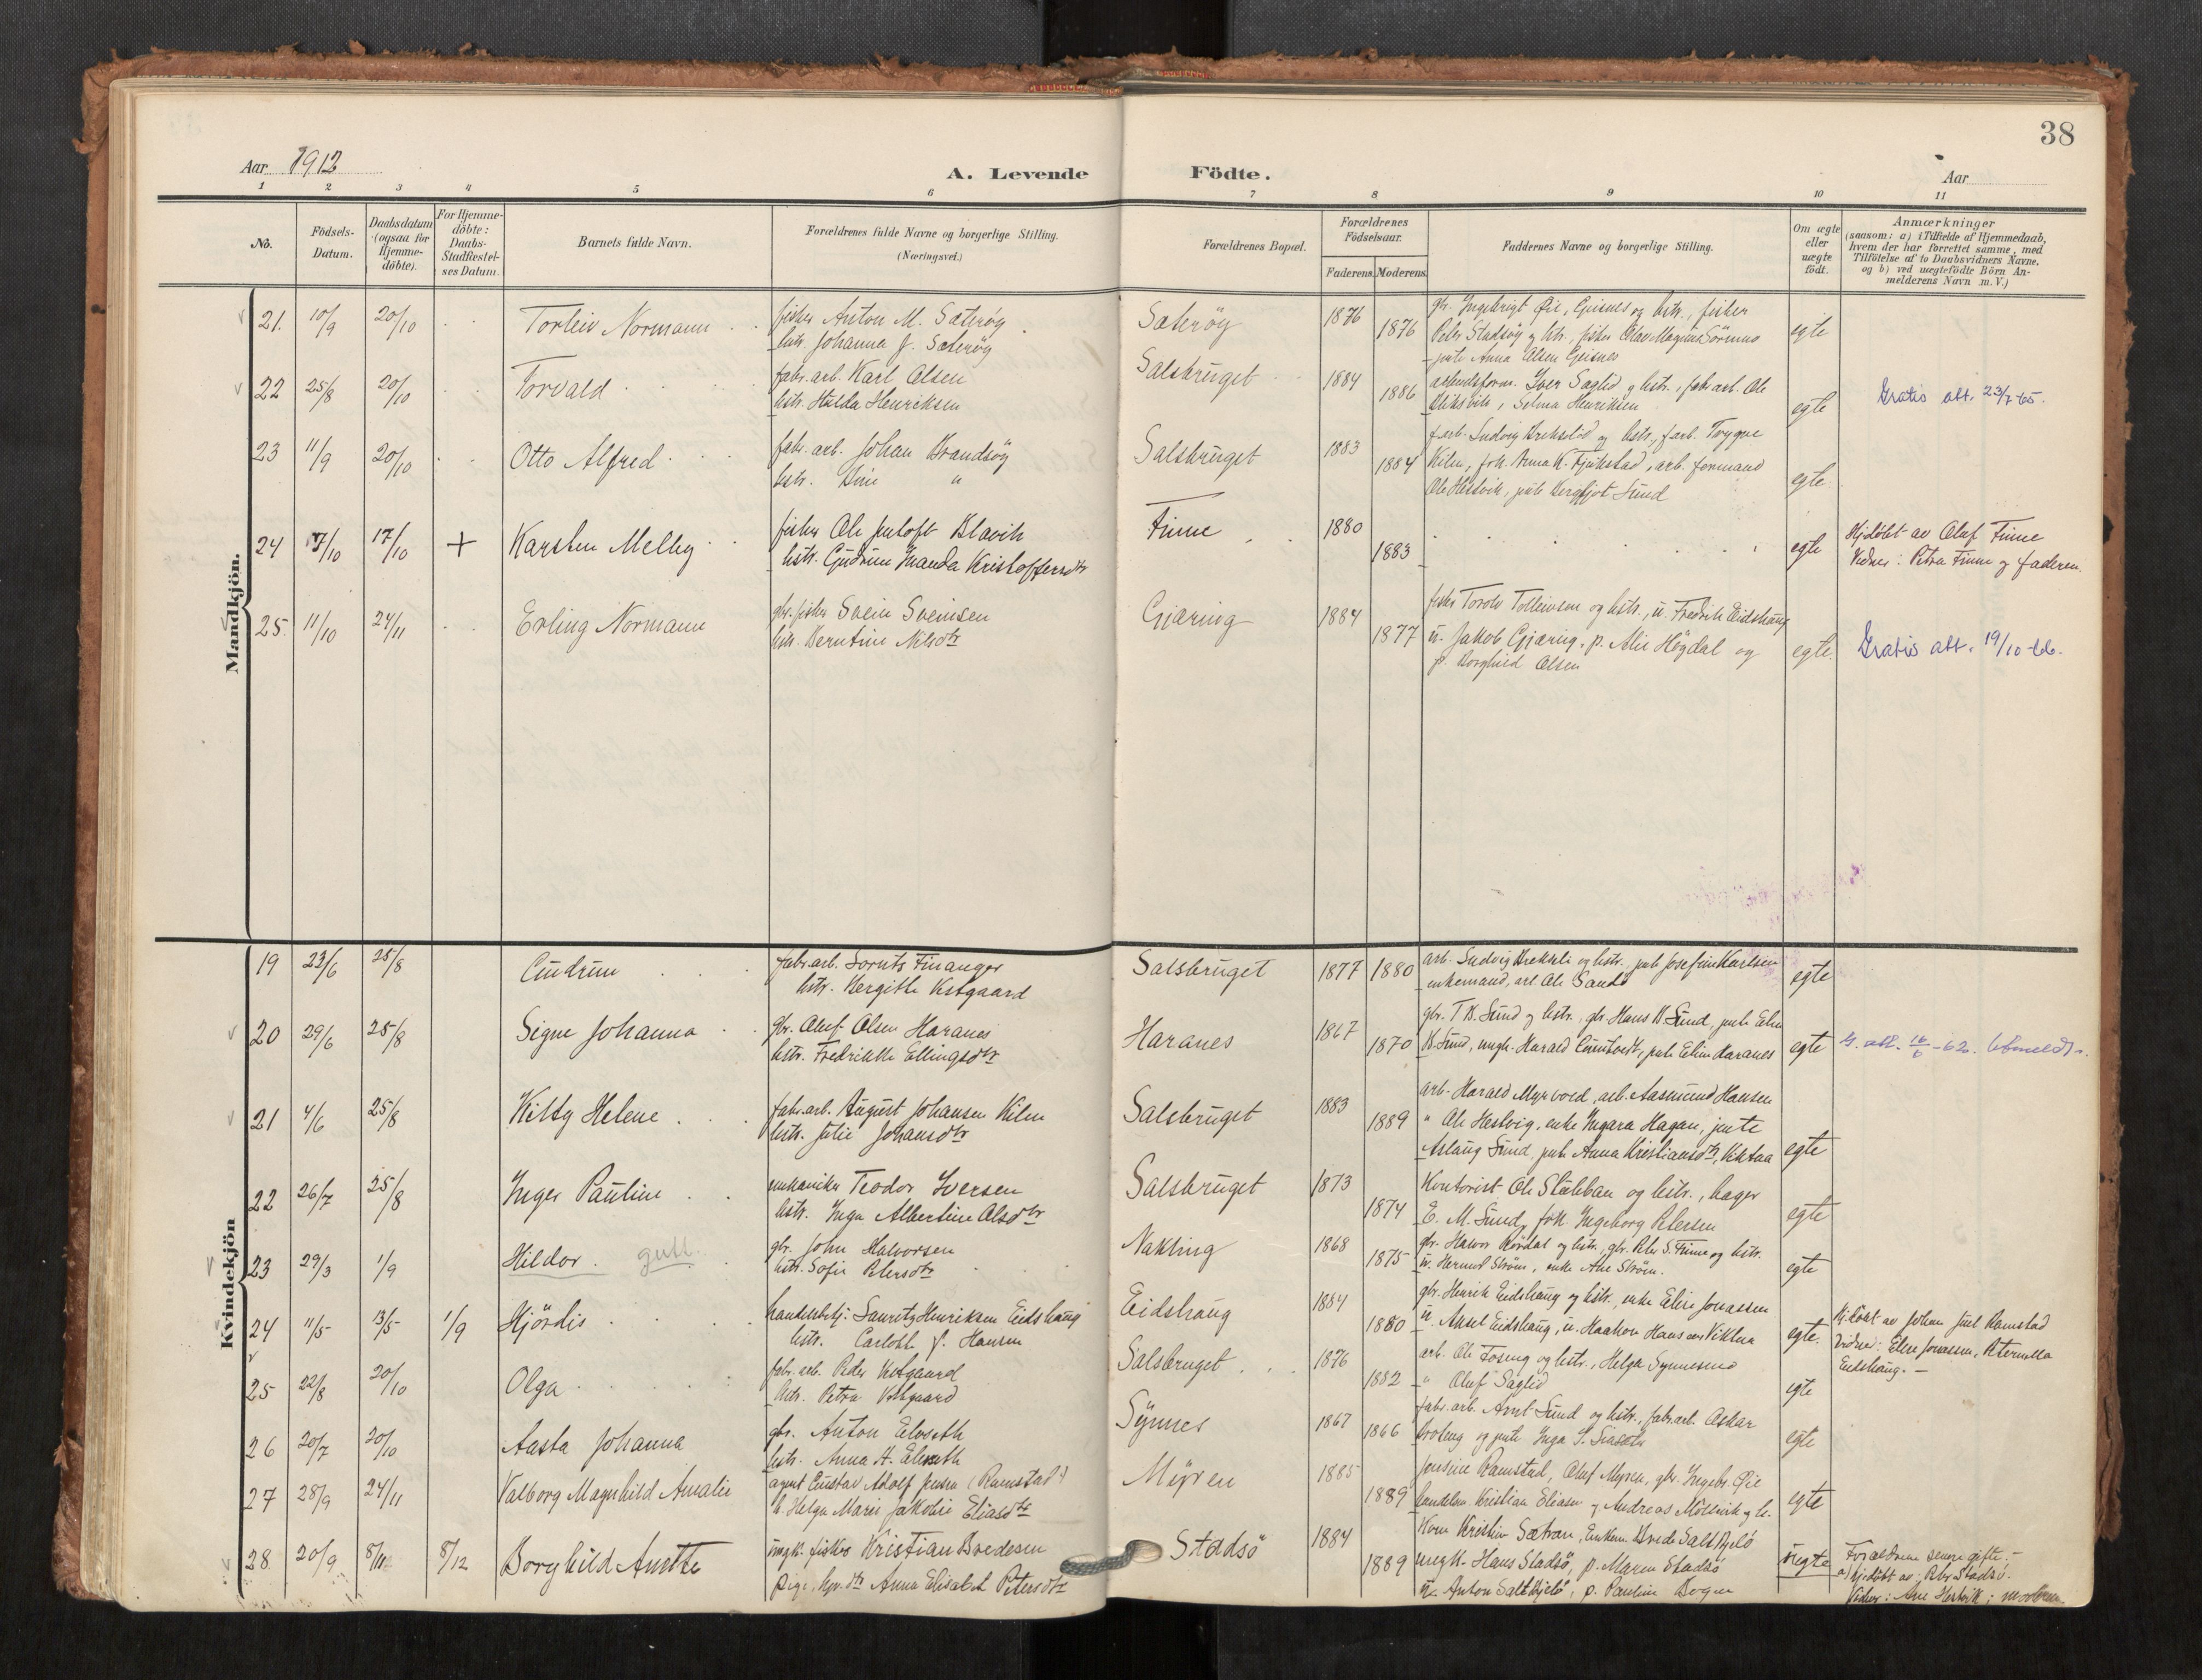 38
Aar 1912
A. Levende Födte.
Aar
1 2 3 4 5 6 7 8 9 10 11
No.
Födsels-Datum.
Daabsdatum (ogsaa for Hjemme-döbte).
For Hjemme-döbte: Daabs-Stadfestel-ses Datum.
Barnets fulde Navn.
Forældrenes fulde Navne og borgerlige Stilling.
(Næringsvei.)
Forældrenes Bopæl.
Forældrenes Födselsaar.
Faderens. Moderens.
Faddernes Navne og borgerlige Stilling.
Om ægte eller uægte födt.
Anmærkninger
(saasom: a) i Tilfælde af Hjemmedaab,
hvem der har forrettet samme, med
Tilföielse af to Daabsvidners Navne.
og b) ved uægtefödte Börn An-
melderens Navn m. V.)
Mandkjön.
21. 10/9 20/10 Torleiv Normann
fisker Anton M. Sæteröy
hstr. Johanna J. Sæteröy
Sæteröy 1876 1876
gbr. Ingebrigt Öie, Geisnes og hstr., fisker
Peter Stadsöy og hstr., fisker Olav Magnus Sörmo
jente Anna Olsen Geisnes
egte
22 25/8 20/10 Torvald
fabr. arb. Karl Olsen
hstr. Hulda Henriksen
Salsbruget 1884 1886
arbeidsform. Iver Saglid og hstr., fabr. arb. Ole
Selma Henriksen
egte
Gratis att. 23/7-65.
23 11/9 20/10 Otto Alfred
fabr. arb. Johan Brandsöy
hstr. Dine "
Salsbruget 1883 1884
f.arb. Ludvig og hstr., f.arb. Trygve
Kiln, frk. Anna K. Fjukstad, arb. formand
Ole Hestvik, jente Bergljot Sund
egte
24 17/10 17/10 + Karsten Melby
fisker Ole Jentoft Blavik
hstr. Gudrun Wanda Kristoffersdtr
Finne 1880 1883
egte
Hjdöbt av Oluf Finne
Vidner: Petra Finne og faderen.
25. 11/10 24/11 Erling Normann
gbr. fisker Svein Sveinsen
hstr. Berntine Nilsdtr
Gjæring 1884 1877
fisker Torolv Tolleivsen og hstr., u. Fredrik Eidshaug
u. Jakob Gjæring, p. Alie Högdal og
p. Borghild Olsen
egte.
Gratis att. 19/10-66.
Kvindekjön
19 23/6 25/8 Gudrun
fabr. arb. Lorents Finanger
hstr. Bergitte Vestgaard
Salsbruget 1877 1880
arb. Ludvig og hstr. jente Josefine Karlsen
enkemand, arb. Ole Sandö
egte
20 29/6 25/8 Signe Johanna
gbr. Oluf Olsen Haranes
hstr. Fredrikke Ellingsdtr
Haranes 1867 1870
gbr. T. B. Sund og hstr., gbr. Hans B. Sund, jente Elen
B. Sund, ungk. Harald jente Elise Haranes
egte
G. att. 16/6-62.
21 4/6 25/8 Kitty Helene
fabr. arb. August Johansen Kiln
hstr. Julie Johansdtr
Salsbruget 1883 1889
arb. Harald Myrvold, arb. Aasmund Hansen
" Ole Hestvig, enke Ingara Hagan, jente
Aslaug Sund, jente Anna Kristiansdtr, Viktaa
egte
22 26/7 25/8 Inger Pauline
mekaniker Teodor Iversen
hstr. Inga Albertine Olsdtr
Salsbruget 1873 1874
Kontorist Ole Slatebaen og hstr., bager
E. M. Sund, frk. Ingeborg Petersen
egte
23 29/3 1/9 Hildor. gutt.
gbr. John Halvorsen
hstr. Sofie Petersdtr
Nakling 1868 1875
gbr. Halvor Rördal og hstr., gbr. Peter S. Finne og hstr.
u. Hermod Ström, enke Ane Ström.
egte
24 11/5 13/5 1/9 Hjördis
handelsbetj. Lauritz Henriksen Eidshaug
hstr. Carlotte J. Hansen
Eidshaug 1884 1880
gbr. Henrik Eidshaug og hstr., enke Eline Jonassen
u. Aksel Eidshaug, u. Haakon Hansen Viktna
egte.
Hj.döbt av Johan Juel Ramstad
Vidner: Eline Jonassen, Peternella
Eidshaug.
25 22/8 20/10 Olga
fabr. arb. Peder Vestgaard
hstr. Petra Vestgaard
Salsbruget 1876 1882
arb. Ole Foseng og hstr., Helga Synnesmo
" Oluf Saglid
egte
26 20/7 20/10 Aasta Johanna
gbr. Anton Elvseth
hstr. Anna H. Elvseth
Synnes 1867 1866
fabr. arb. Arnt Sund og hstr., fabr. arb. Oskar
og jente Inga S.
egte
27 28/9 24/11 Valborg Magnhild Amalie
agent Gustav Adolf Jensen (Ramstad)
h. Helga Marie Jakobie Eliasdtr
Myren 1885 1889
Jensine Ramstad, Oluf Myren, gbr. Ingebr. Öie
handelsm. Kristian Eliasen og Andreas Möllevik og h.
egte
28 20/9 8/11 8/12 Borghild Anette
ungk. fisker Kristian Bredesen
pige, hjv. dtr. Anna Elisabet Petersdtr
Stadsö 1884 1889
Kone Kristine Sætran, Enkem. Brede Saltkjelö
ungk. Hans Stadsö, p. Maren Stadsö
u. Anton Saltkjelö, p. Pauline Bogen
uegte
Forældrene senere gifte.
a) hjdöbt av: Peter Stadsö.
Vidner: Ane Hestvik; moderen